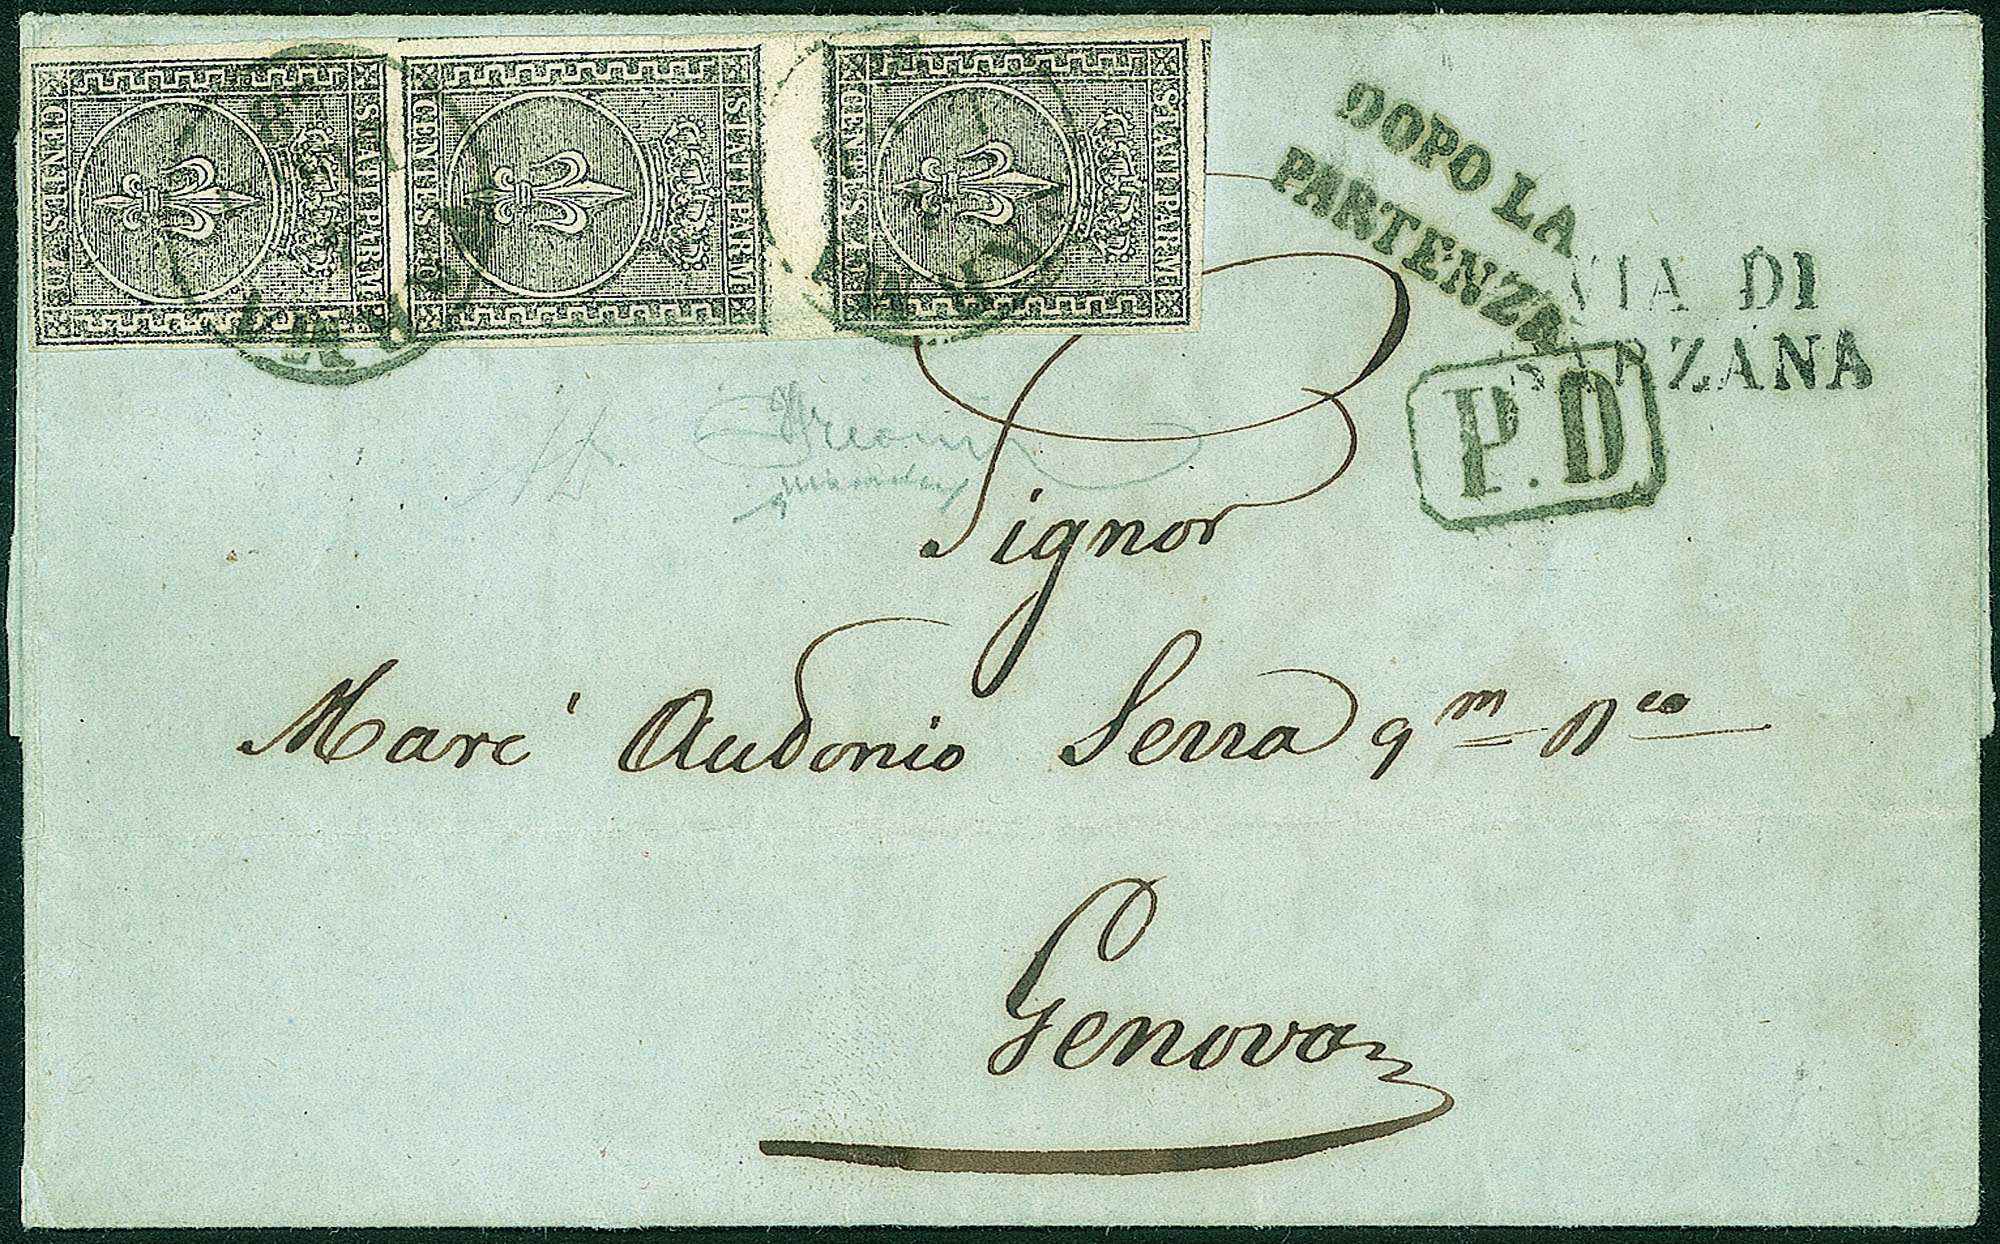 STATI PARM.
CENTES. 10
STATI PARM.
CENTES. 10
STATI PARM.
CENTES. 10
DOPO LA
PARTENZA
VIA DI
SARZANA
P.D
Signor
Marc' Antonio Serra qm Nco
Genova